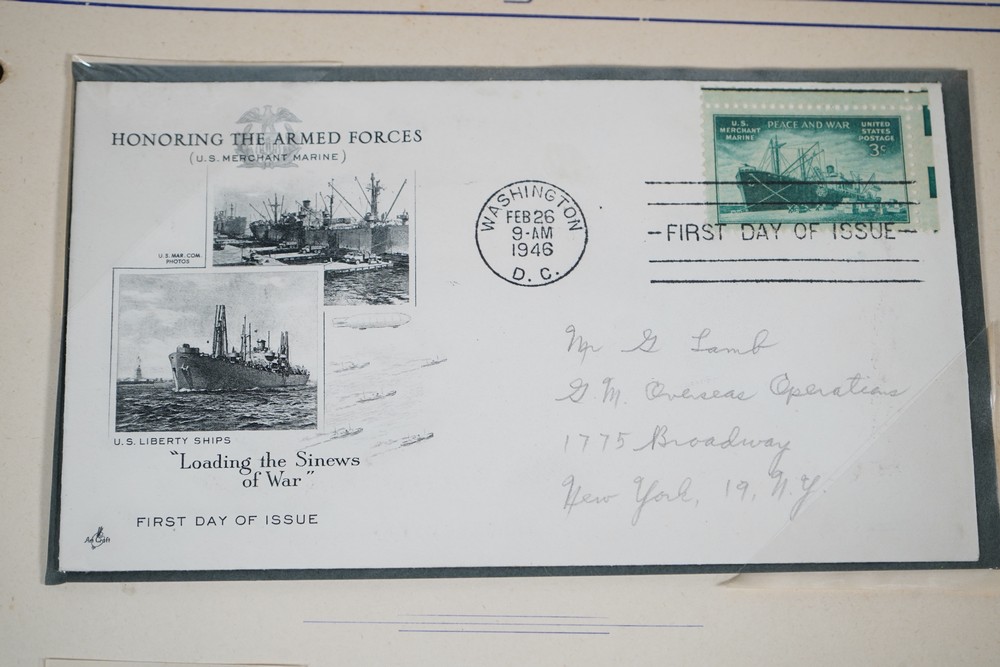 HONORING THE ARMED FORCES
(U.S. MERCHANT MARINE)
U.S. MAR. COM.
PHOTOS
U.S. LIBERTY SHIPS
"Loading the Sinews
of War"
FIRST DAY OF ISSUE
Art Craft
WASHINGTON
FEB 26
9-AM
1946
D. C.
U.S.
MERCHANT
MARINE
PEACE AND WAR
UNITED
STATES
POSTAGE
3¢
FIRST DAY OF ISSUE
Mr G Lamb
G.M. Overseas Operations
1775 Broadway
New York, 19, N.Y.